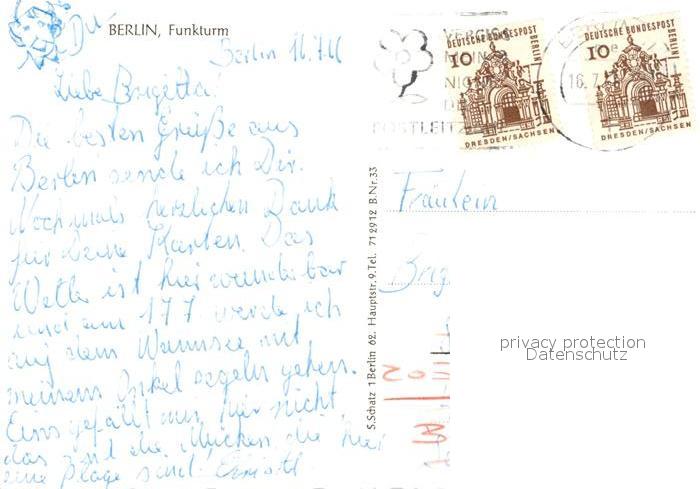 Du
BERLIN, Funkturm
Berlin 16.7.66
Liebe Brigitta!
Die besten Grüße aus
Berlin sende ich Dir.
Nochmals herzlichen Dank
für Deine Karten. Das
Wetter ist hier wunderbar
und am 17.7. werde ich
auf dem Wannsee mit
meinem Onkel segeln gehen.
Eins gefällt mir hier nicht,
das sind die Mücken die hier
eine Plage sind!
S.Schatz 1 Berlin 62. Hauptstr.9.Tel. 712912 B.Nr.33
DEUTSCHE BUNDESPOST
BERLIN
10
DRESDEN/SACHSEN
DEUTSCHE BUNDESPOST
BERLIN
10
DRESDEN/SACHSEN
16.7.6
POSTLEITZ
Fräulein
Brig
privacy protection
Datenschutz